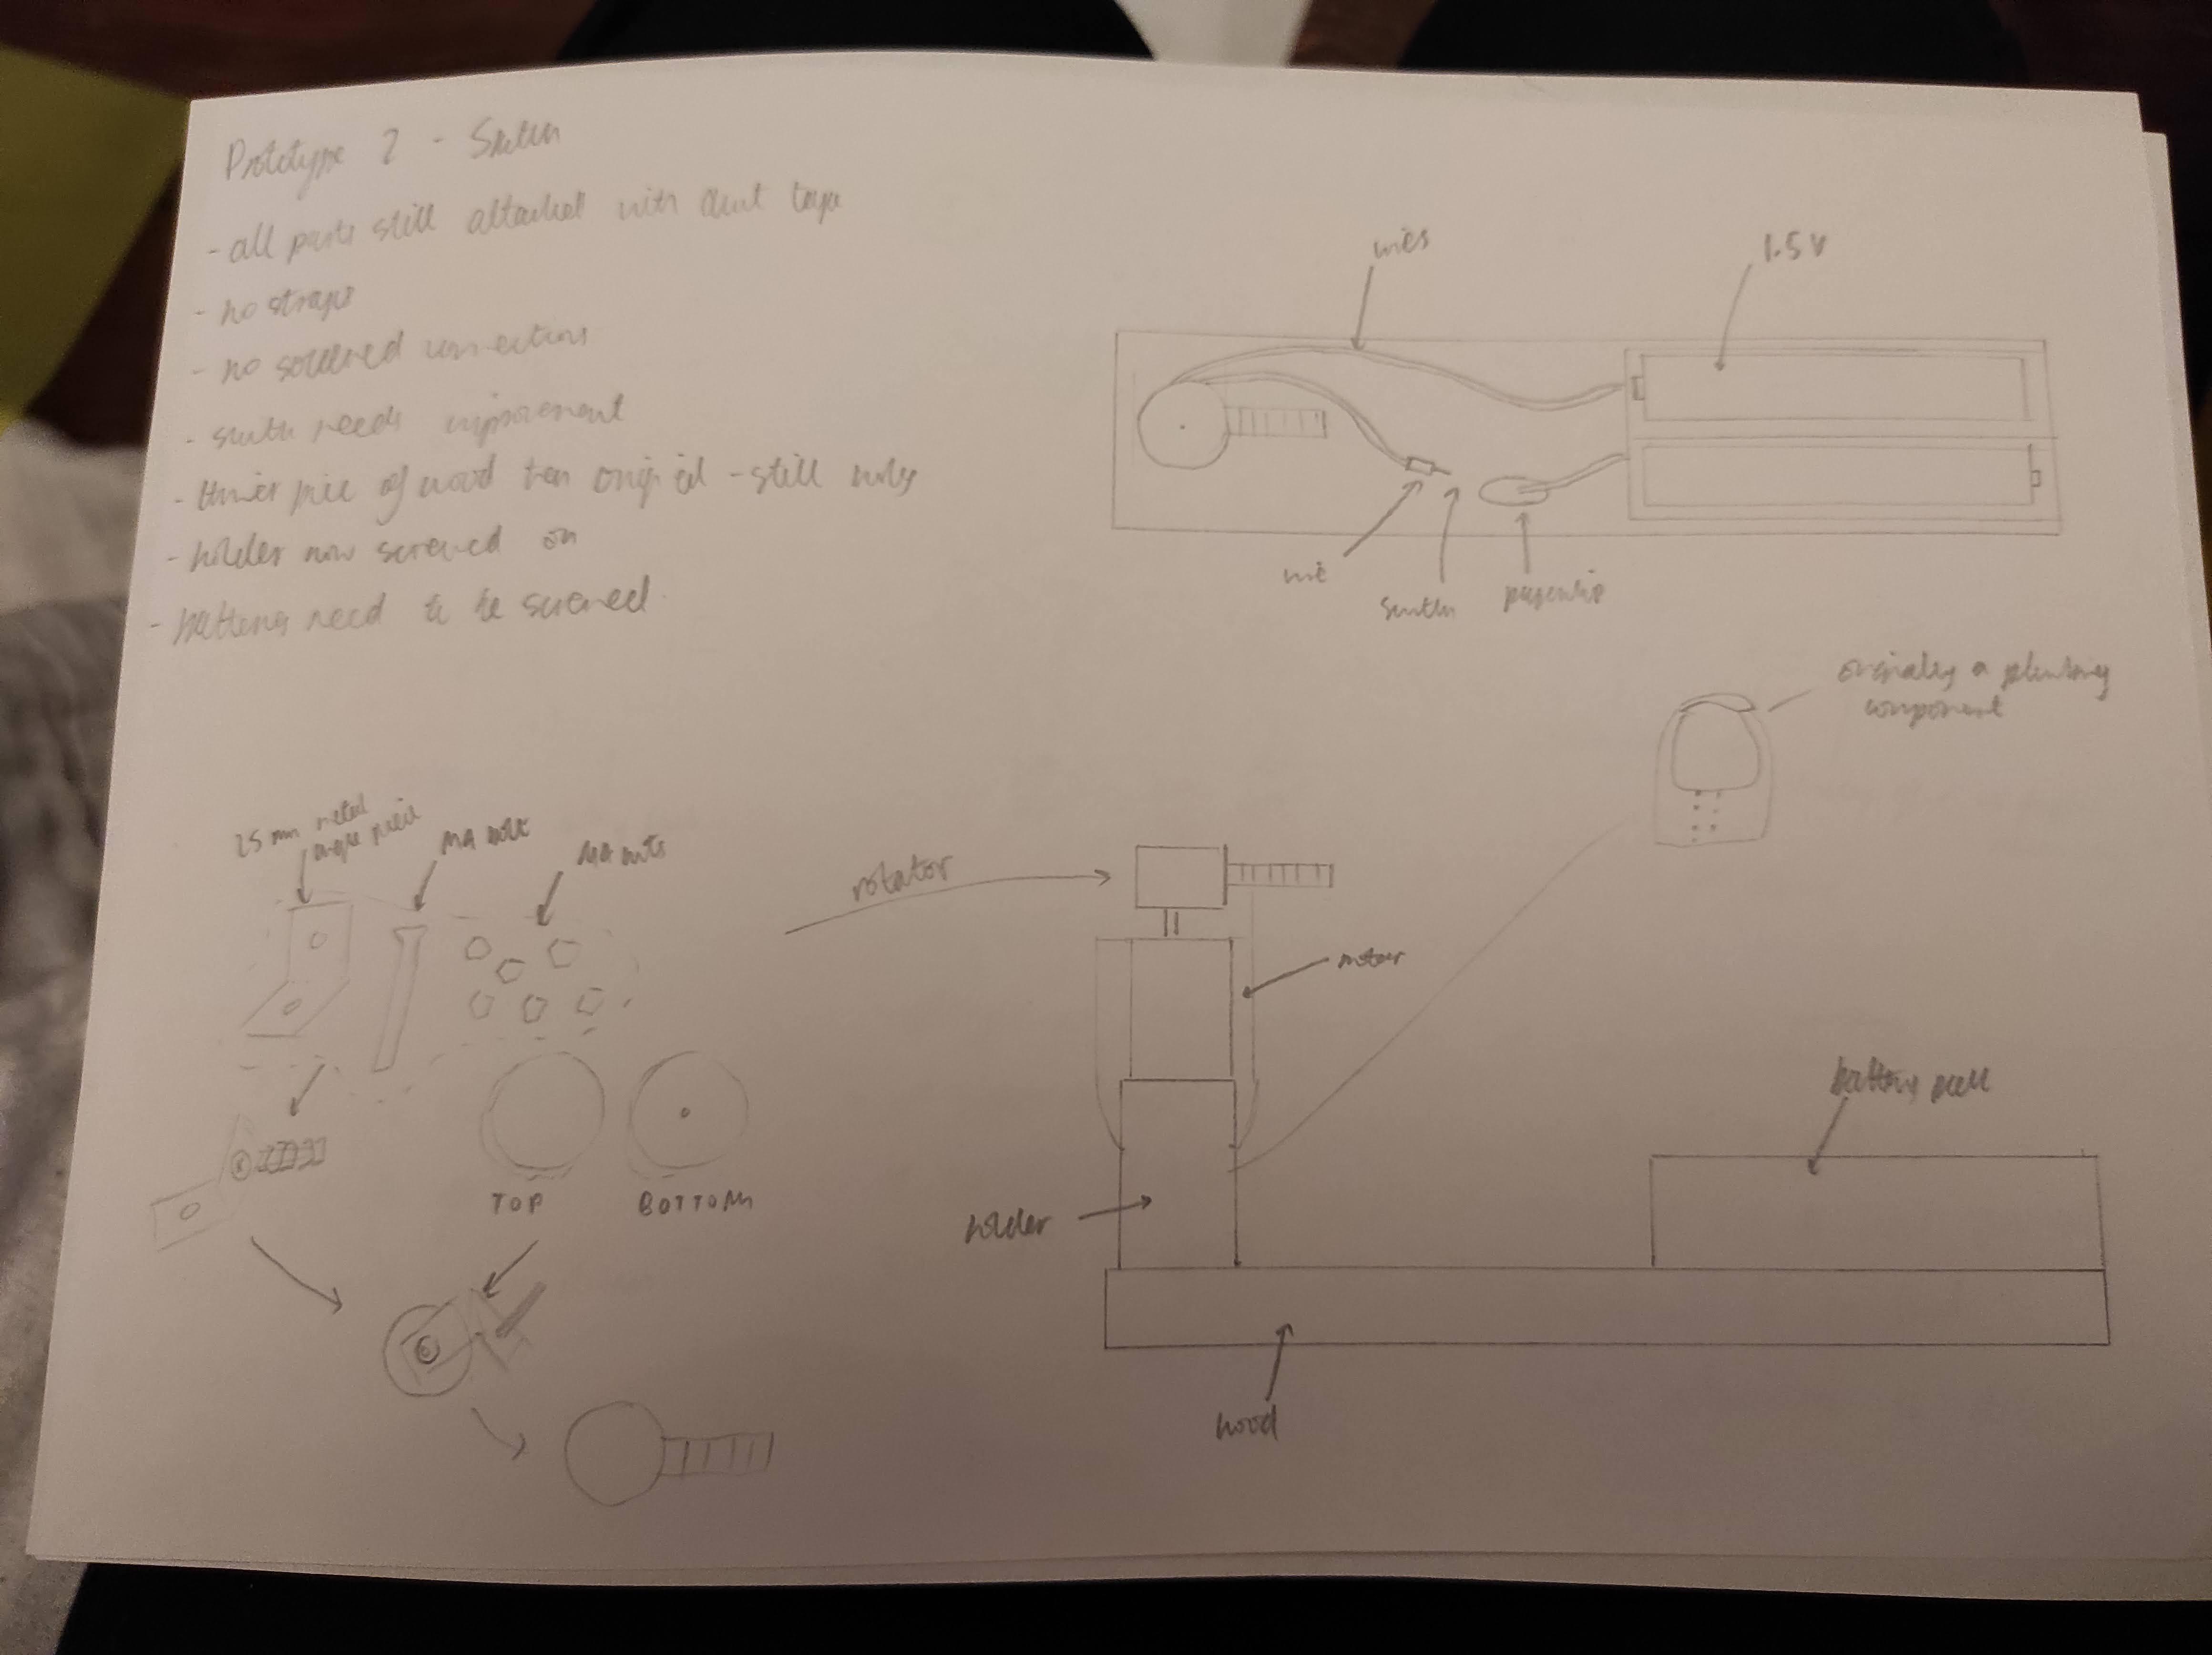 Prototype 2 - Sketch
- all parts still attached with duct tape
- no straps
- no soldered connections
- switch needs improvement
- thinner piece of wood than original - still
- holder now screwed on
- batteries need to be screwed
wires
1.5 V
wire
switch
paperclip
originally a plumbing
component
25 mm metal
angle piece
M4 bolt
M4 nuts
rotator
motor
battery pack
TOP
BOTTOM
holder
wood